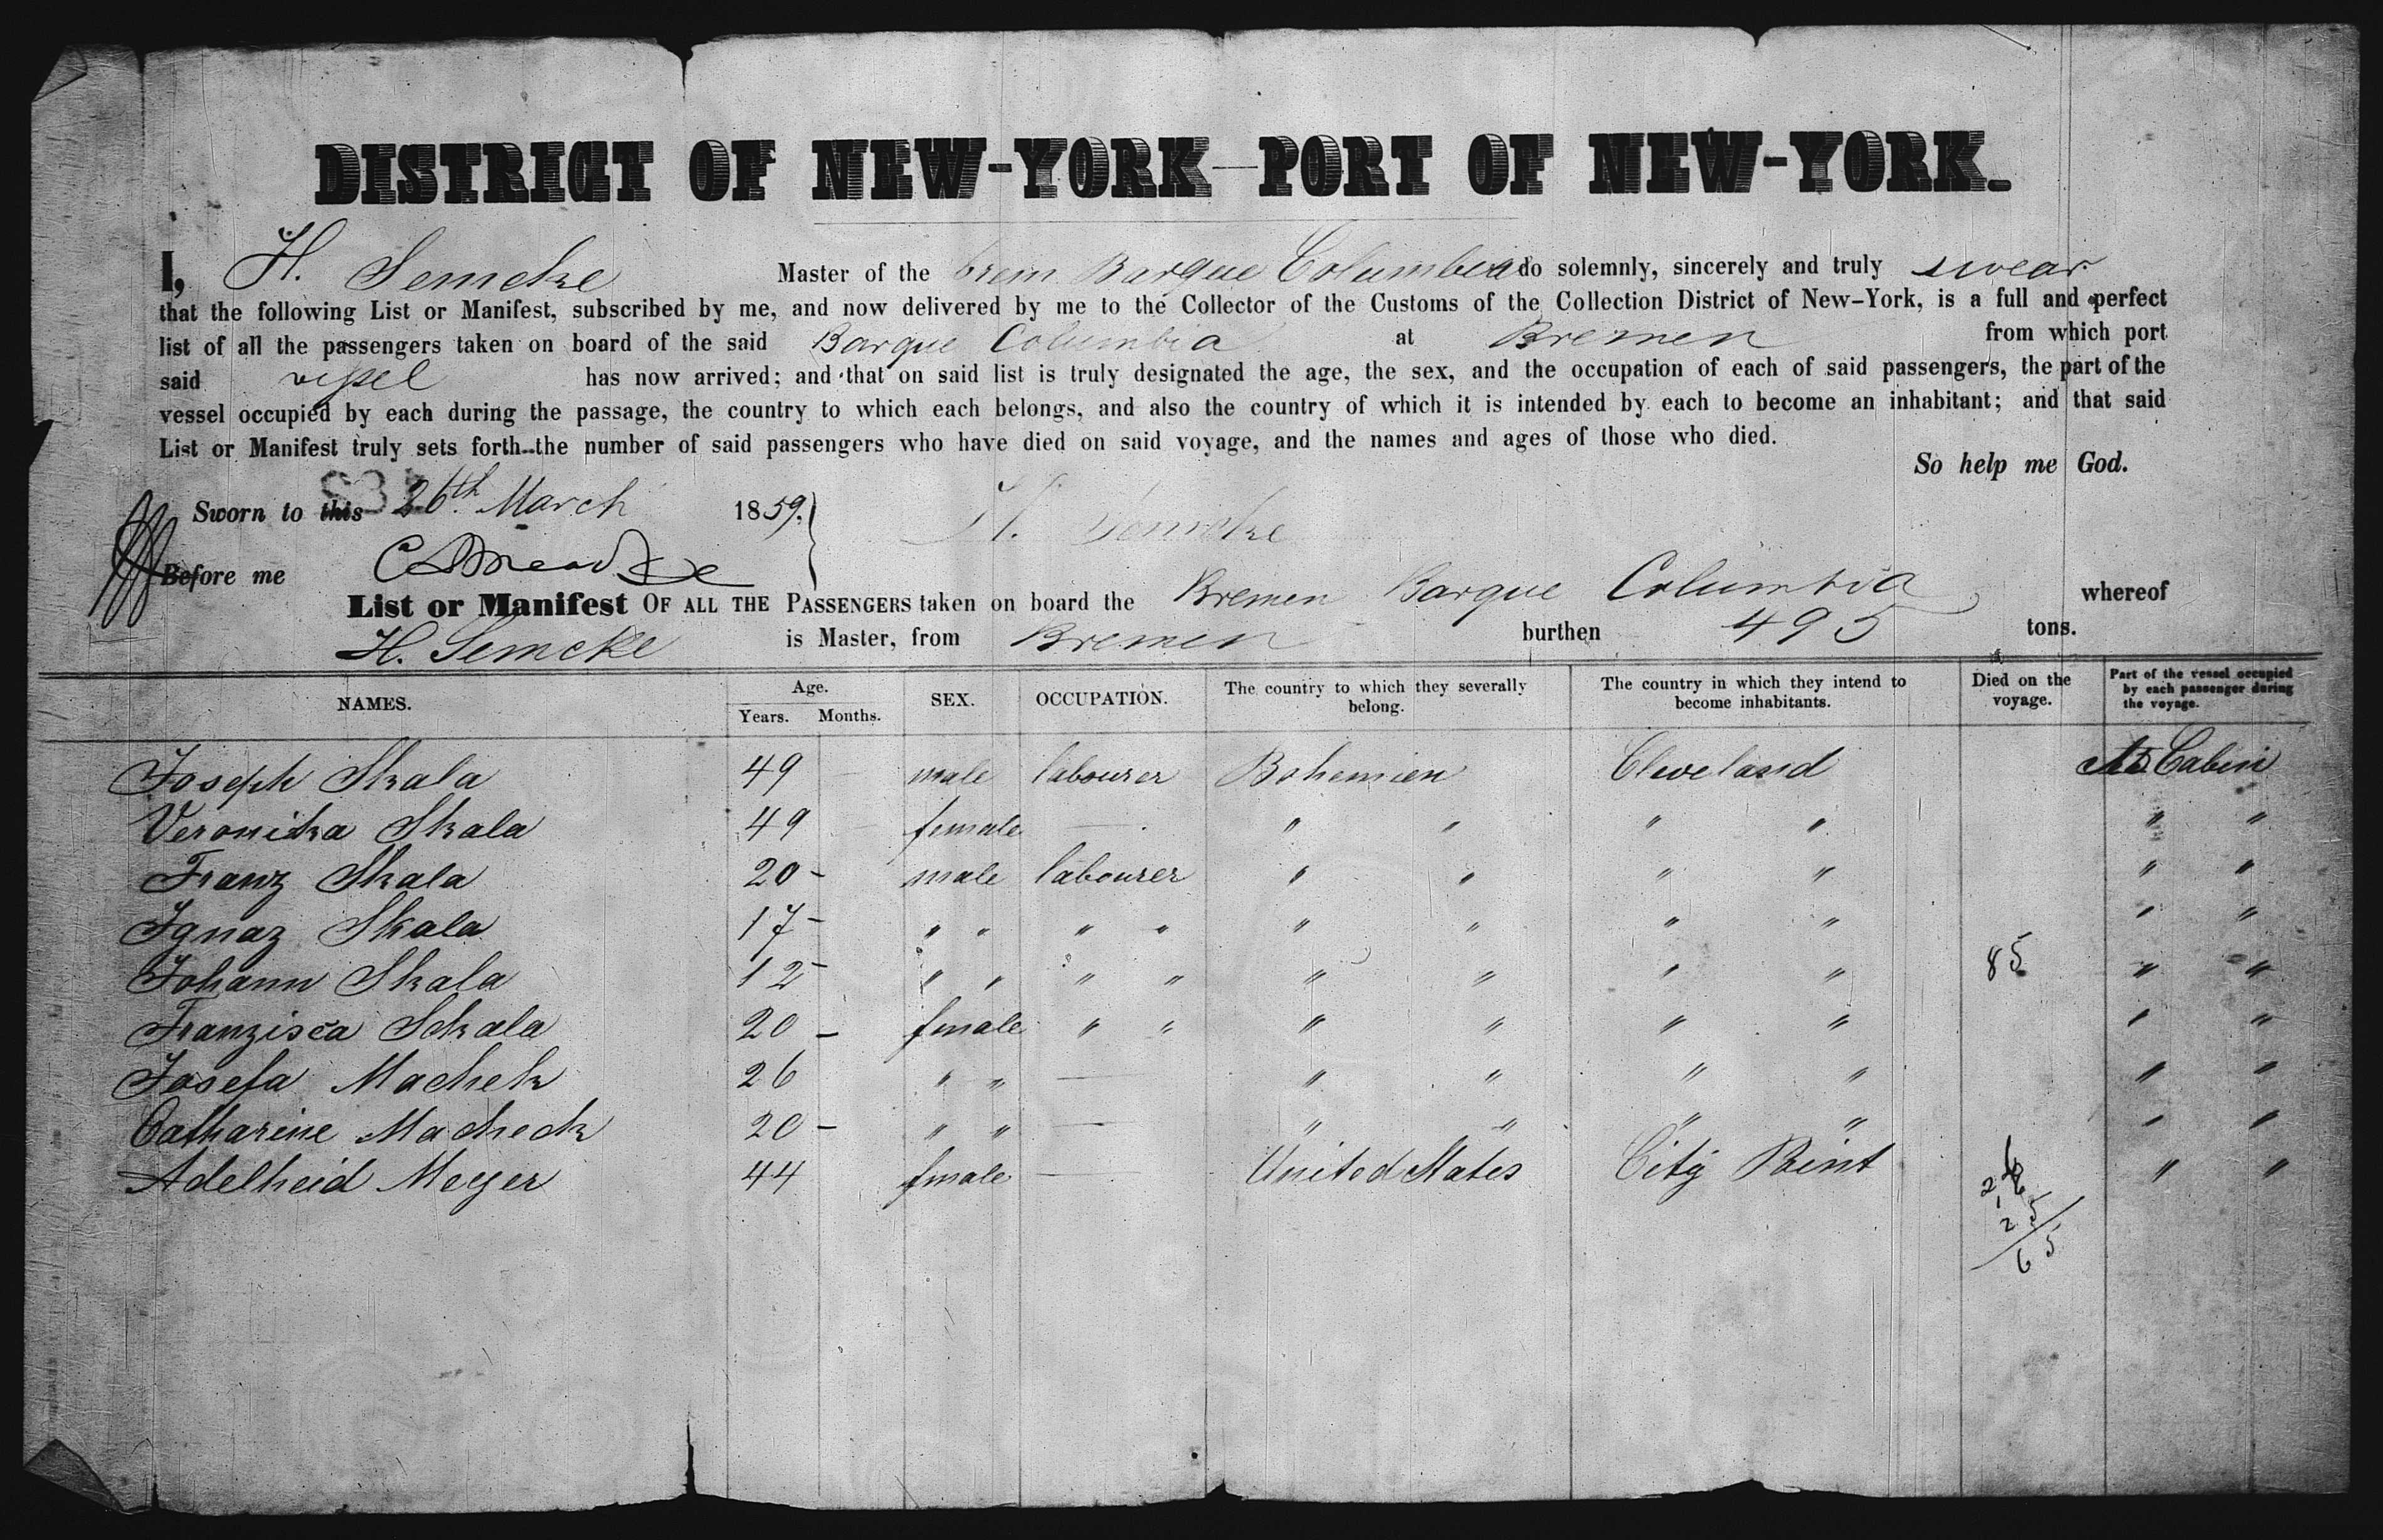 DISTRICT OF NEW-YORK—PORT OF NEW-YORK.
I, H. Semcke Master of the brem. Barque Columbia do solemnly, sincerely and truly swear
that the following List or Manifest, subscribed by me, and now delivered by me to the Collector of the Customs of the Collection District of New-York, is a full and perfect
list of all the passengers taken on board of the said Barque Columbia at Bremen from which port
said vessel has now arrived; and that on said list is truly designated the age, the sex, and the occupation of each of said passengers, the part of the
vessel occupied by each during the passage, the country to which each belongs, and also the country of which it is intended by each to become an inhabitant; and that said
List or Manifest truly sets forth the number of said passengers who have died on said voyage, and the names and ages of those who died.
So help me God.
Sworn to this 26th March 1859. H. Semcke
Before me
List or Manifest OF ALL THE PASSENGERS taken on board the Bremen Barque Columbia whereof
H. Semcke is Master, from Bremen burthen 495 tons.
NAMES. Age. Years. Months. SEX. OCCUPATION. The country to which they severally belong. The country in which they intend to become inhabitants. Died on the voyage. Part of the vessel occupied by each passenger during the voyage.
Joseph Skala 49 male labourer Bohemien Cleveland Cabin
Veronika Skala 49 female — " " " " " "
Franz Skala 20 - male labourer " " " " " "
Ignaz Skala 17 - " " " " " " " " " "
Johann Skala 12 - " " " " " " " " 85 " "
Franzisca Schala 20 - female " " " " " " " "
Josefa Machek 26 " " — " " " " " "
Catharine Macheck 20 - " " — " " " " " "
Adelheid Meyer 44 female — United States City Point " "
65